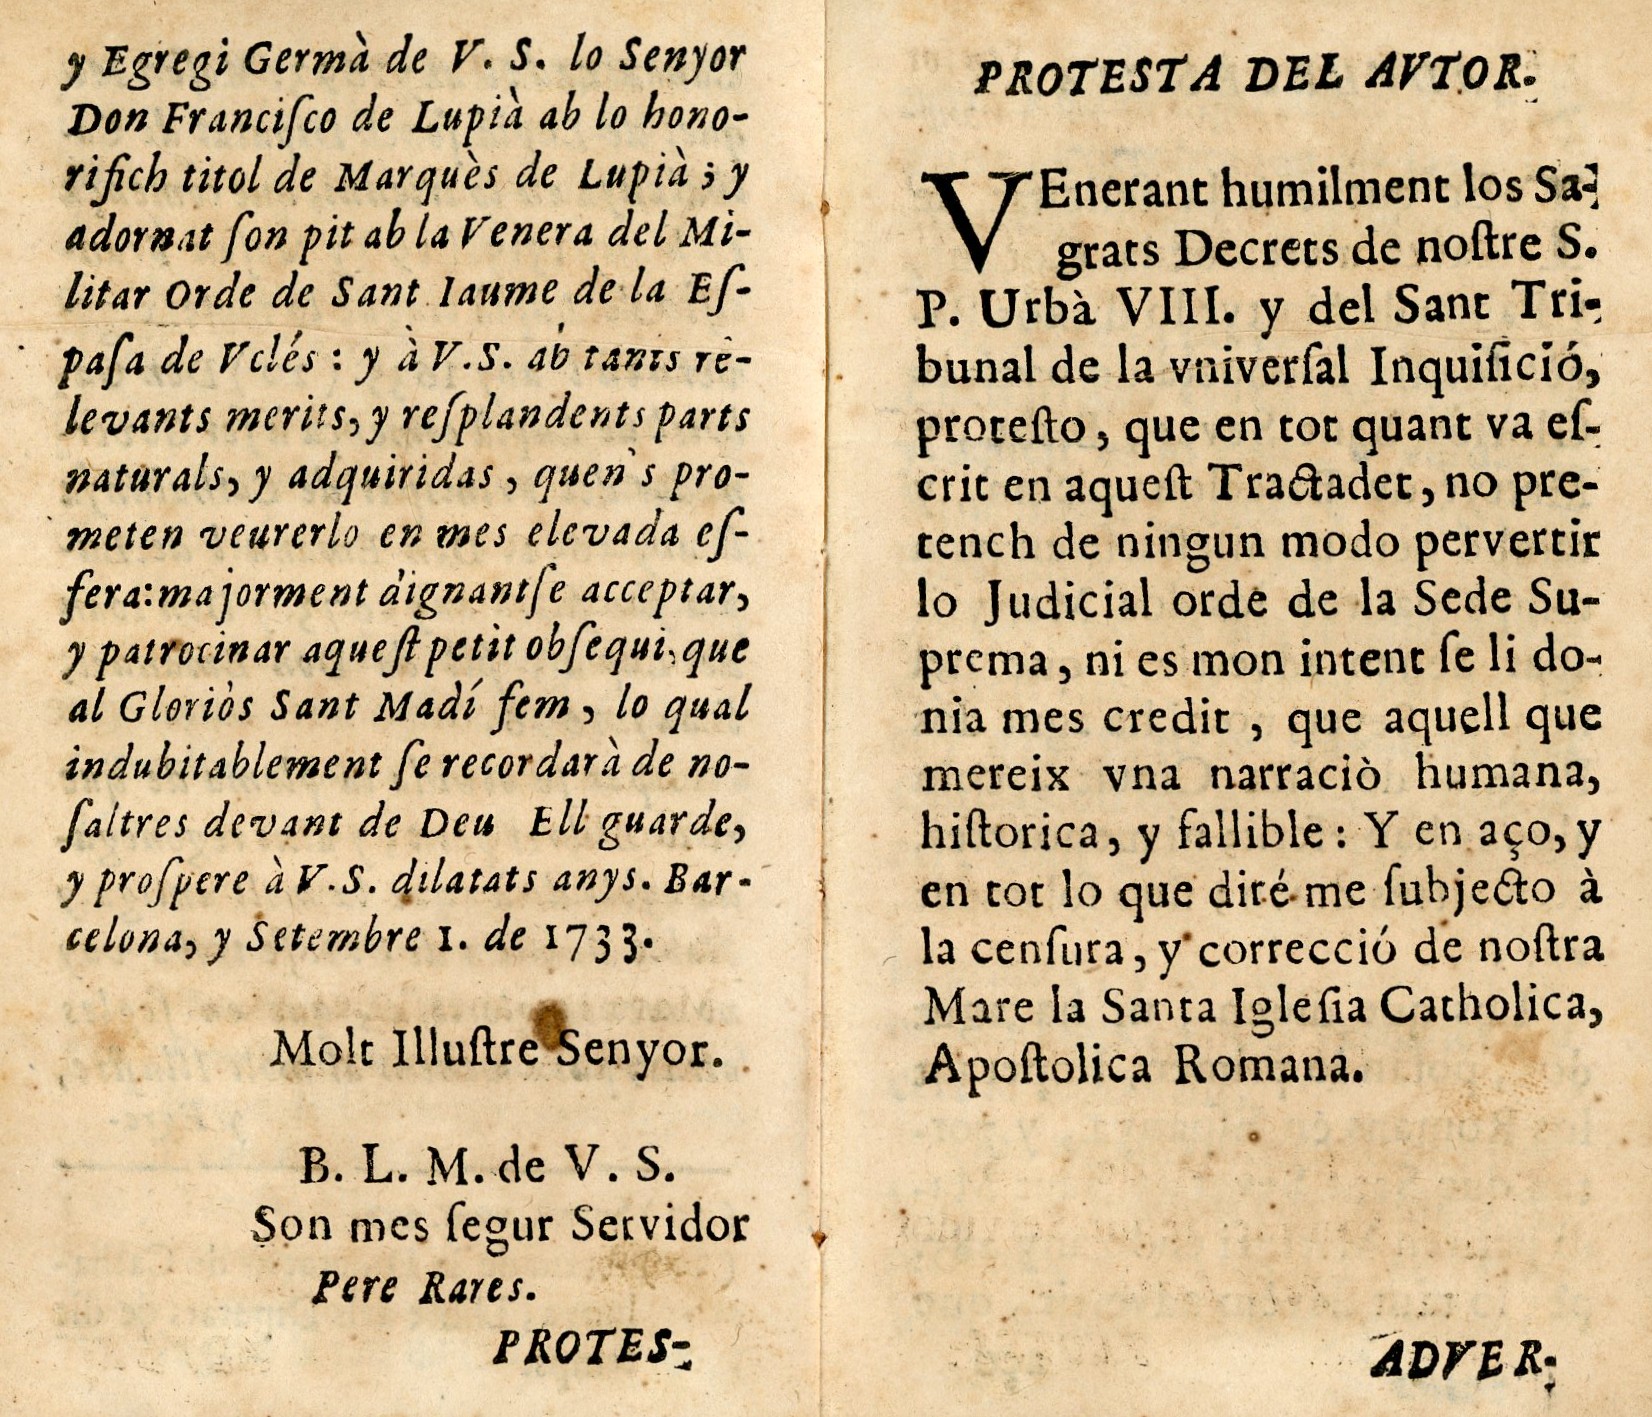 y Egregi Germà de V. S. lo Senyor
Don Franciſco de Lupià ab lo hono-
rifich titol de Marquès de Lupià ; y
adornat ſon pit ab la Venera del Mi-
litar Orde de Sant Iaume de la Eſ-
paſa de Vclés : y à V.S. ab tants re-
levants merits, y reſplandents parts
naturals, y adquiridas , quen's pro-
meten veurerlo en mes elevada eſ-
fera: majorment dignantſe acceptar,
y patrocinar aqueſt petit obſequi, que
al Gloriòs Sant Madí fem , lo qual
indubitablement ſe recordarà de no-
ſaltres devant de Deu Ell guarde,
y proſpere à V.S. dilatats anys. Bar-
celona, y Setembre 1. de 1733.
Molt Illuſtre Senyor.
B. L. M. de V. S.
Son mes ſegur Servidor
Pere Rares.
PROTES-
PROTESTA DEL AVTOR.
VEnerant humilment los Sa-
grats Decrets de noſtre S.
P. Urbà VIII. y del Sant Tri-
bunal de la vniverſal Inquiſició,
proteſto , que en tot quant va eſ-
crit en aqueſt Tractadet, no pre-
tench de ningun modo pervertir
lo Judicial orde de la Sede Su-
prema , ni es mon intent ſe li do-
nia mes credit , que aquell que
mereix vna narraciò humana,
hiſtorica, y fallible : Y en aço, y
en tot lo que diré me ſubjecto à
la cenſura, y correcció de noſtra
Mare la Santa Igleſia Catholica,
Apoſtolica Romana.
ADVER-